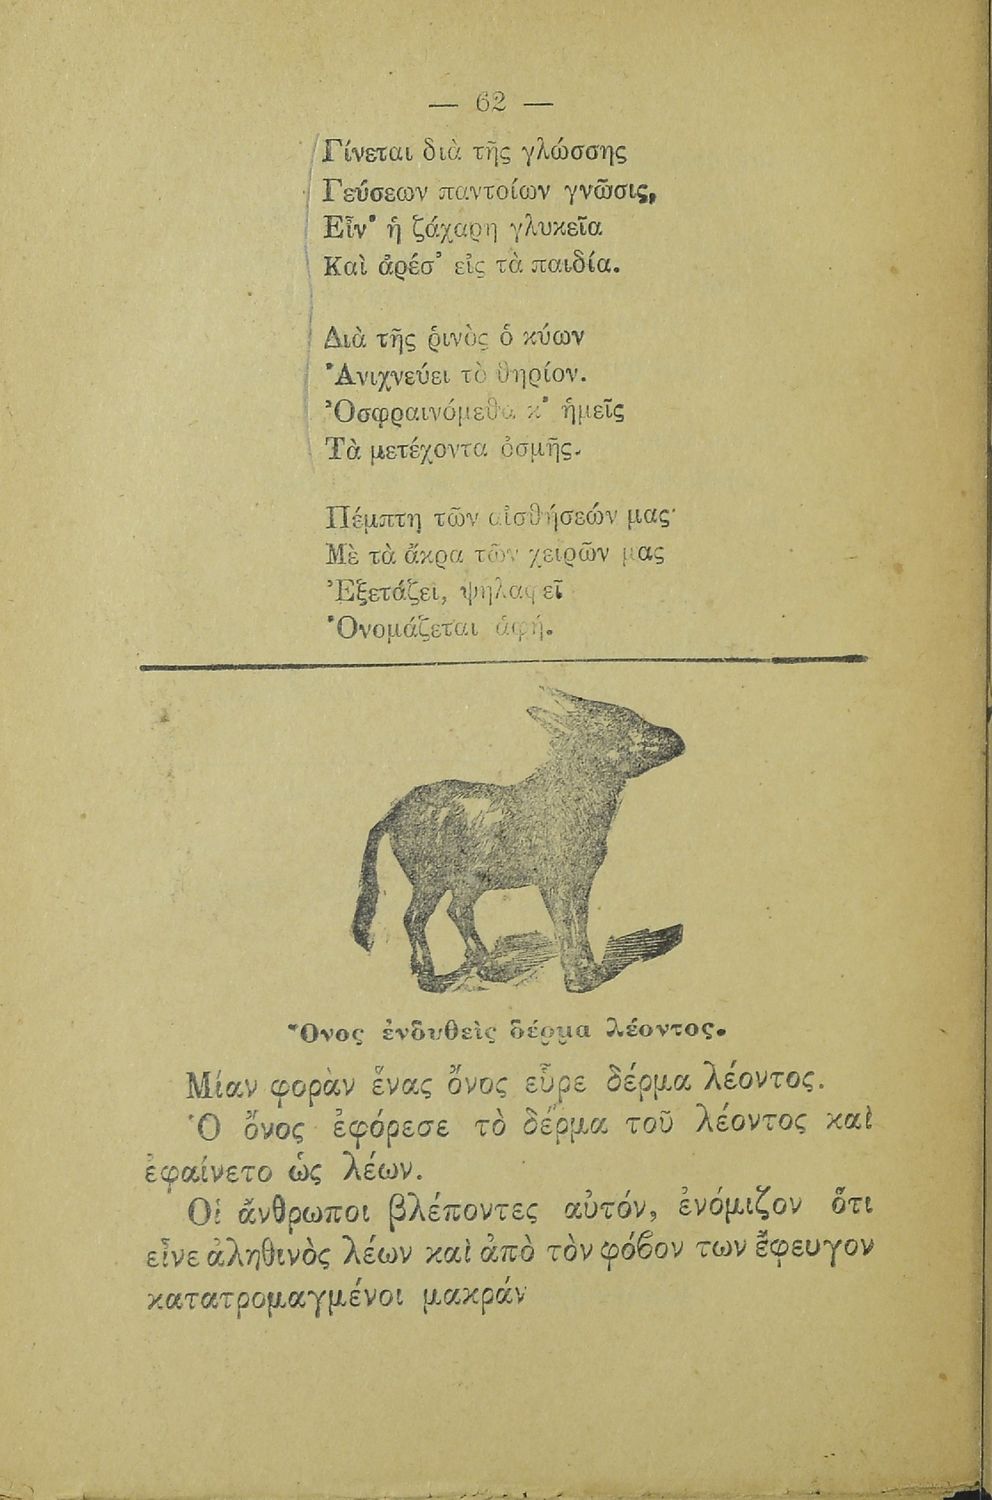 — 62 —
Γίνεται διὰ τῆς γλώσσης
Γεύσεων παντοίων γνῶσις,
Εἶν' ἡ ζάχαρη γλυκεῖα
Καὶ ἀρέσ' εἰς τὰ παιδία.
Διὰ τῆς ῥινὸς ὁ κύων
Ἀνιχνεύει τὸ θηρίον.
Ὀσφραινόμεθα κ' ἡμεῖς
Τὰ μετέχοντα ὀσμῆς.
Πέμπτη τῶν αἰσθήσεών μας·
Μὲ τὰ ἄκρα τῶν χειρῶν μας
Ἐξετάζει, ψηλαφεῖ
Ὀνομάζεται ἁφή.
Ὄνος ἐνδυθεὶς δέρμα λέοντος.
Μίαν φορὰν ἕνας ὄνος εὗρε δέρμα λέοντος.
Ὁ ὄνος ἐφόρεσε τὸ δέρμα τοῦ λέοντος καὶ
ἐφαίνετο ὡς λέων.
Οἱ ἄνθρωποι βλέποντες αὐτόν, ἐνόμιζον ὅτι
εἶνε ἀληθινὸς λέων καὶ ἀπὸ τὸν φόβον των ἔφευγον
κατατρομαγμένοι μακράν